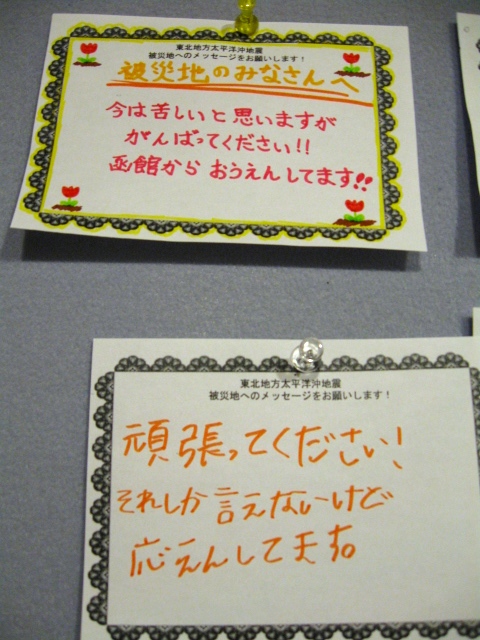 東北地方太平洋沖地震
被災地へのメッセージをお願いします！
被災地のみなさんへ
今は苦しいと思いますが
がんばってください!!
函館から おうえんしてます!!
東北地方太平洋沖地震
被災地へのメッセージをお願いします！
頑張ってください!
それしか言えないけど
応えんしてます。